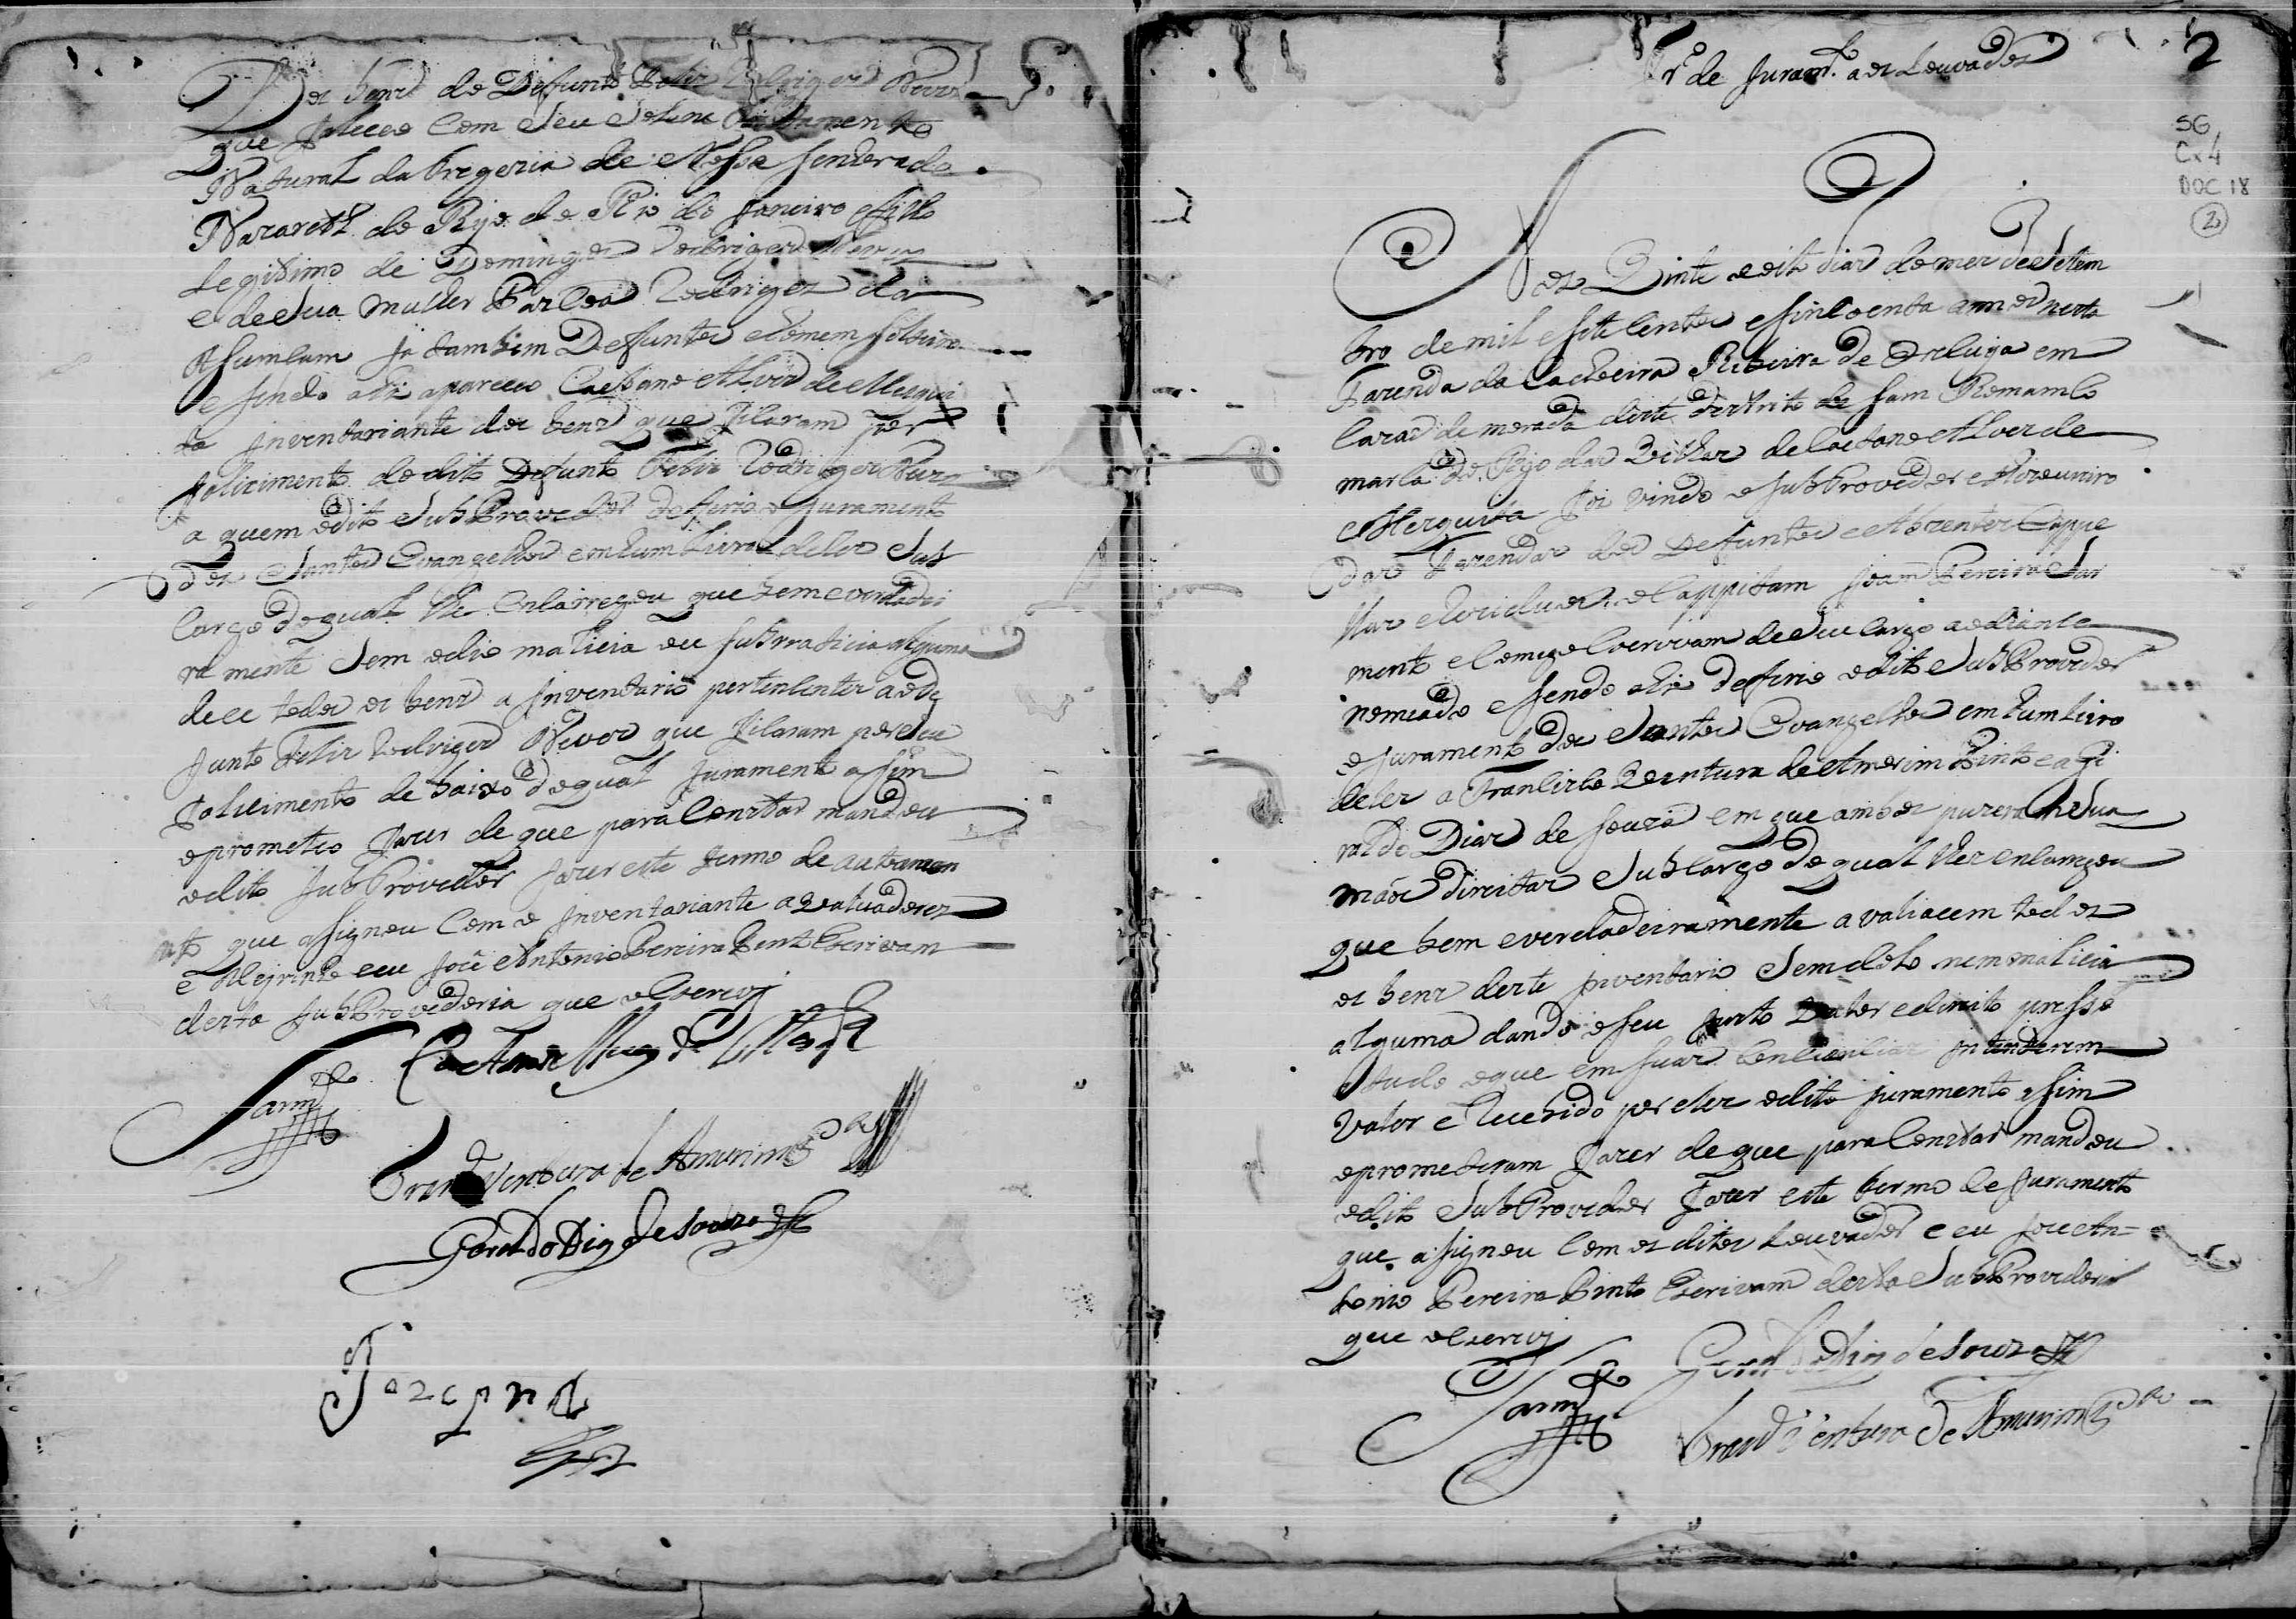 Dos bens do Defunto Felix Rodrigues Neves
que faleceo com seu solene testamento
Natural da Fregezia de Nossa Senhora de
Nazareth do Rijo do Rio de Janeiro filho
Legitimo de Domingos Rodrigues Neves
e de Sua mulher Barboa Rodrigues da
Asumsam ja tambem Defuntos e homem solteiro
e sendo ahi apareceo Caetano Alves de Mesqui
ta Inventariante dos bens que ficaram por
falicimento do dito Defunto Felix Rodrigues Neves
a quem o dito SubProvedor deferio o juramento
dos Santos Evangelhos em hum Livro delles Sub
cargo do qual lhe encarregou que bem e verdadei
ra mente Sem odio malicia ou subrraticia alguma
dece todos os bens a Inventario pertencentes ao de
funto Felix Rodrigues Neves que ficaram por seu
falicimento de baixo do qual Juramento asim
o prometeo fazer de que para Constar mandou
o dito SubProvedor fazer este termo de autoamen
to que asignou Com o Inventariante avaluadores
e Meirinho e eu José Antonio Pereira Pinto Escrivam
desta SubProvedoria que o Escrevj
Sarmto
Caetano Alvez de Mesqta
Francº Ventura de Amurim Pto
Geraldo Dias de Souza
Joze
2
Tro de Juramto aos Louvados
SG
Cx 4
DOC 18
2
Aos Vinte e oito dias do mes de Setem
bro de mil e sete centos e sincoenta annos nesta
Fazenda da Cachoeira Ribeira de Orcuija em
cazas de morada deste destrito de Sam Romam Co
marca do Rijo das Velhas de Caetano Alves de
Mesquita foi vindo o SubProvedor e Tizoureiro
das Fazendas dos Defuntos e Abzentes Cappe
llas e Reziduos o Cappitam Joam Pereira Sar
mento e Comigo Escrivam de Seu cargo ao diante
nomeado e sendo ahi deferio o dito SubProvedor
o juramento dos Santos Evangelhos em hum Livro
delles a Francisco Ventura de Amorim Pinto e a Gi
raldo Dias de Souza em que ambos puzeram Suas
mãos direitas Sub Cargo do qual lhes encarregou
que bem e verdadeiramente avaliacem todos
os bens deste Inventario Sem dolo nem malicia
alguma dando o seu justo Valor e dirieito presso
a tudo o que em suas Conciencias intenderem
Valor e Recebido por elles o dito juramento asim
o prometeram fazer de que para Constar mandou
o dito SubProvedor fazer este termo de Juramento
que asignou Com os ditos Louvados e eu Joze An=
tonio Pereira Pinto Escrivam desta SubProvedoria
que o Escrevj
Sarmto
Geraldo Dias de Souza
Francº Ventura de Amurim Pto